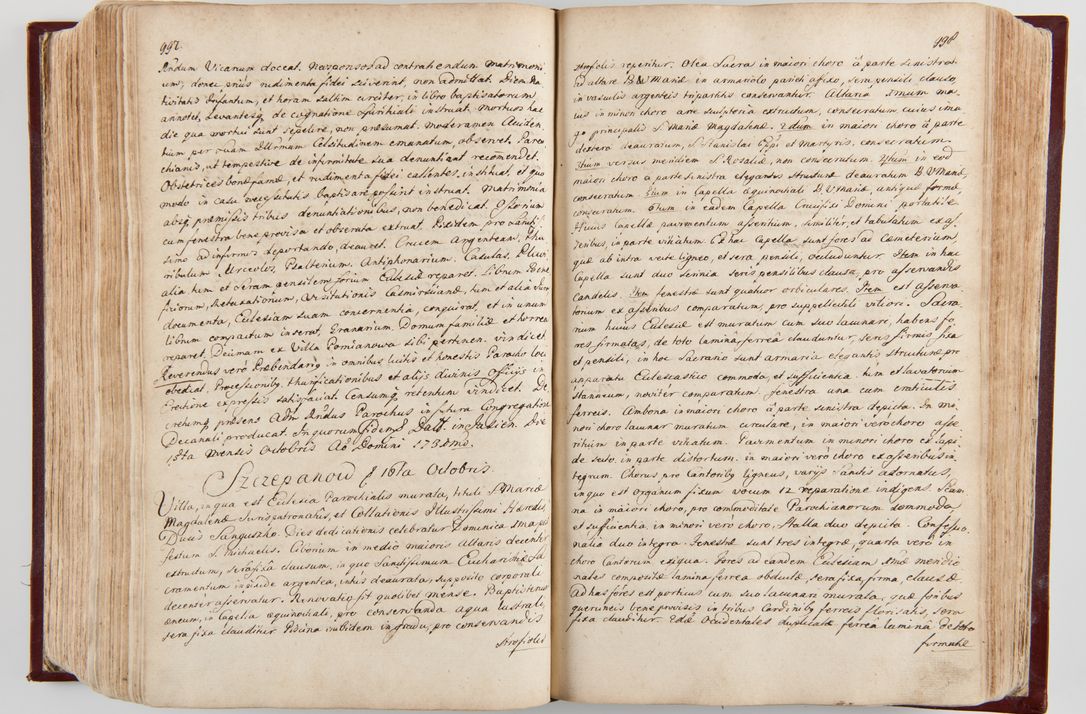 997.
Rndum Vicarium doceat. Nec sponsos ad contrahendum matrimoni
um, donec prius rudimenta fidei sciverint, non admittat. Diem Na
tivitatis Infantum, et horam saltim circiter, in libro baptisatorum,
annotet, Levantesq de cognatione spirituali instruat. Mortuos hac
die qua mortui sunt sepelire, non præsumat. Moderamen Acciden
tium per suam Illrmum Celsitudinem emanatum, observet. Paro
chianis, ut tempestive de infirmitate sua denuntiant recomendet.
Obstetrices bonæ famæ, et rudimenta fidei callentes, instituat, et quo
modo in casu necessitatis baptisare possint instruat. Matrimonia
absq præmissis tribus denuntiationibus, non benedicat. Ostiorium
cum fenestra bene provisa et obserata extruat. Pixidem pro Sanctis
simo ad infirmos deportando, deauret. Crucem Argenteam, Thu
ribulum Urceolos, Psalterium, Antiphonarium, Casulas, Pluvi
alia tum et Seram pensilem forium Ecclesiæ reparet. Librum Bene
ficiorum, Retaxationum, Visitationis Casmirsianæ, tum et alia Jura
documenta, Ecclesiam suam concernentia, conquirat, et in unum
librum compactum inserat, Granarium, Domum familiæ et horrea
reparet, Decimam ex Villa Pomianowa sibi pertinen. vindicet
Reverendus vero Præbendarig in omnibus licitis et honestis Parocho loci
obediat. Processionibg, thurificationibus et alijs divinis officijs in
Erectione expressis satisfaciat. Censumq retentum vindicet. De
cretumq præsens Adm Rndus Parochus in futura Congregatione
Decanali producat. In quorum fidem Datt. in Jasien. Die
15ta Mensis Octobris Ao Domini 1728mo.
Szczepanow  16ta Octobris.
Villa, in qua est Ecclesia Parochialis murata, tituli S. Mariæ
Magdalenæ Jurispatronatus, et Collationis Illustrissimi Hæredis,
Ducis Sanguszko. Dies dedicationis celebratur Dominica ante
festum S. Michaelis. Ciborium in medio maioris Altaris decenter
extructum, sera fixa clausum, in quo Sanctissimum Eucharistiæ Sa
cramentum in pixide argentea, intus deaurata, supposito corporali
decenter asservatur. Renovatio fit quolibet mense. Baptisterium
æneum, in Capella æquinoctiali, pro conservanda aqua lustrali,
sera fixa clauditur. Piscina inibidem in gradu, pro conservandis
strofiolis

998.
strofiolis reperitur. Olea Sacra in maiori choro â parte sinistra
ad altare B. V. Mariæ in armariolo parieti affixo, sera pensili clauso,
in vasculis argenteis tripartitis conservantur. Altaria 1mum ma
ius in minori choro arte sculptoria extructum, consecratum cuius ima
go principalis S. Mariæ Magdalenæ. 2dum in maiori choro â parte
dextera deauratum, S. Stanislai Eppi et Martyris, consecratum.
3tium versus meridiem S. Rosaliæ, non consecratum. 4tum in eod
maiori choro â parte sinistra elegantis structuræ deauratum B. V. Mariæ,
consecratum. 5tum in Capella æquinoctiali B. V. Mariæ, antiquæ formæ,
consecratum. 6tum in eadem Capella Crucifixi Domini portatile.
Huius Capellæ pavimentum asserhium, similiter et tabulatum ex as
seribus, in parte vitiatum. Ex hac Capella sunt fores ad Cæmeterium,
quæ ab intra vecte ligneo, et sera pensili, occluduntur. Item in hac
Capella sunt duo scrinia seris pensilibus clausa, pro asservandis
candelis. Item fenestræ sunt quatuor orbiculares. Item est asserva
torium ex asseribus comparatum, pro suppellectili viliori. Sacra
rium huius Ecclesiæ est muratum cum suo lacunari, habens fo
res firmatas, de toto lamina ferrea clauduntur, seris firmis, fixa
et pensili, in hoc Sacrario sunt armaria elegantis structuræ pro
apparatu Ecclesiastico commoda, et sufficientia, tum et lavatorium
stanneum, noviter comparatum, fenestra una cum craticulis
ferreis. Ambona in maiori choro â parte sinistra depicta. In mi
nori choro lacunar muratum circulare, in maiori vero choro asse
ritium in parte vitiatum. Pavimentum in minori choro ex lapi
de secto, in parte distortum, in maiori vero choro ex asseribus in
tegrum. Chorus, pro Cantoribg ligneus, varijs Sanctis adornatus,
in quo est organum fixum vocum 12 reparatione indigens. Scam
na in maiori choro, pro commoditate Parochianorum commoda,
et sufficientia, in minori vero choro, stalla duo depicta. Confessio
nalia duo integra. Fenestræ sunt tres integræ, quarta vero in
choro Cantorum exigua. Fores ad eandem Ecclesiam 1mæ meridio
nales compositæ lamina ferrea obductæ, sera fixa, firma, clausæ
Ad has fores est porticus cum suo lacunari murata, suæ foribus
queruneis bene provisis in tribus Cardinibg ferreis florisatis, sera
fixa clauditur. 2dæ Occidentales duplicatæ ferrea lamina de toto
firmatæ